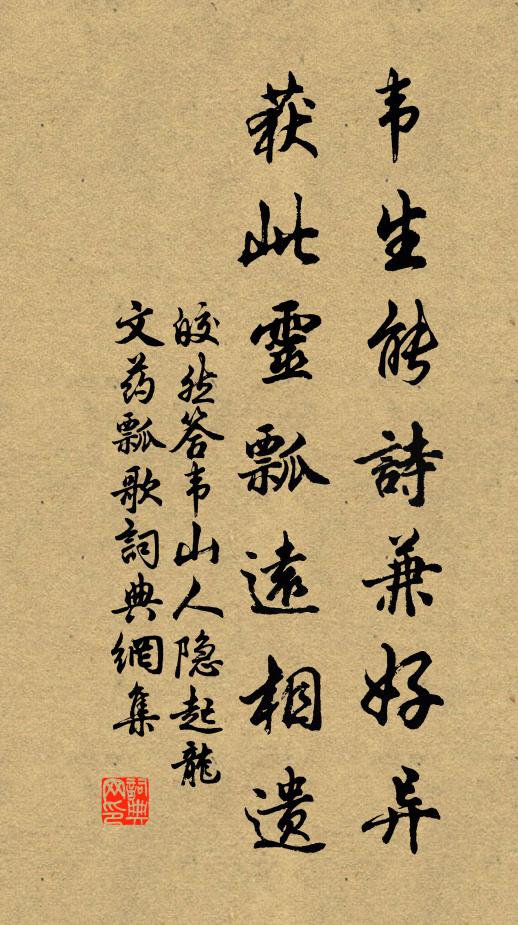 韦生能詩兼好异
获此靈瓢遠相遗
皎然答韦山人隐起龍
文药瓢歌詞典網集
詞典网印